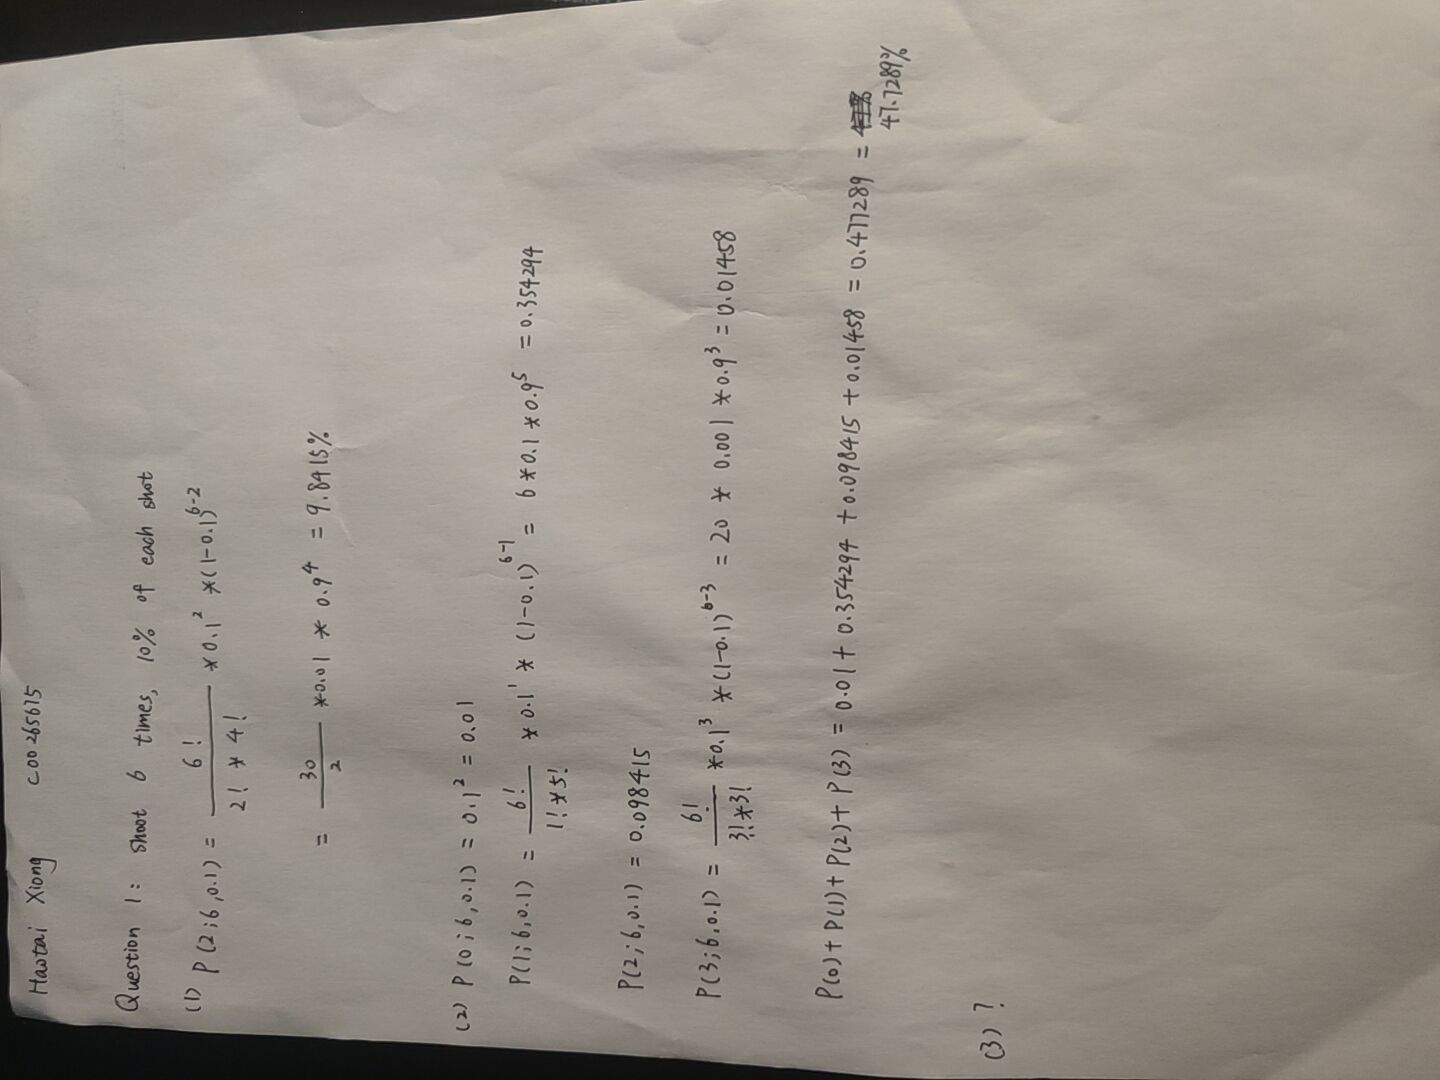 Haotai Xiong C00265675
Question 1: shoot 6 times, 10% of each shot
(1) P(2;6,0.1) = 6! / 2! * 4! * 0.1² * (1-0.1)^6-2
= 30 / 2 * 0.01 * 0.9⁴ = 9.8415%
(2) P(0;6,0.1) = 0.1² = 0.01
P(1;6,0.1) = 6! / 1! * 5! * 0.1¹ * (1-0.1)^6-1 = 6 * 0.1 * 0.9⁵ = 0.354294
P(2;6,0.1) = 0.098415
P(3;6,0.1) = 6! / 3! * 3! * 0.1³ * (1-0.1)^6-3 = 20 * 0.001 * 0.9³ = 0.01458
P(0) + P(1) + P(2) + P(3) = 0.01 + 0.354294 + 0.098415 + 0.01458 = 0.477289 =
47.7289%
(3) ?